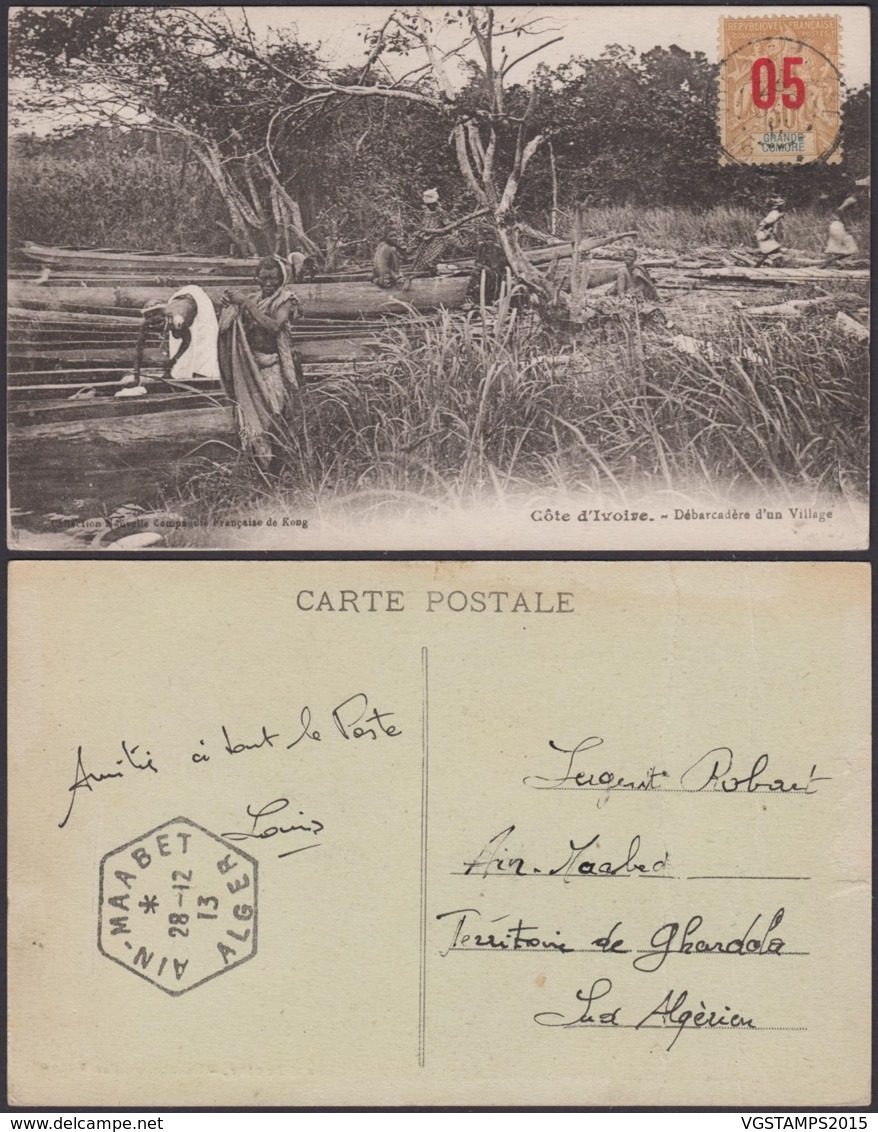 REPUBLIQUE FRANÇAISE
COLONIES POSTES
05
GRANDE
COMORE
Collection Nouvelle Compagnie Française de Kong
Côte d'Ivoire. - Débarcadère d'un Village
CARTE POSTALE
Amitié à tout le Poste
Louis
AIN-MAABET
*
28-12
13
ALGER
Sergent Robart
Aïn-Maabed
Territoire de Ghardaïa
Sud Algérien
VGSTAMPS2015